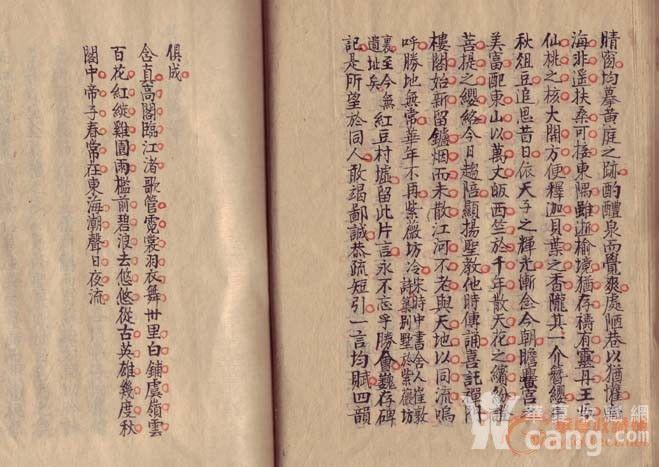 晴窗均摹黃庭之跡酌醴泉而覺爽處陋巷以猶懽
海非遥扶桑可接東隅雖逝榆境猶存禱有靈丹王
仙桃之核大開方便釋迦貝葉之香隴其一介簪纓
秋俎豆追思昔日依天子之輝光漸今朝瞻黌宫
美富配東山以萬丈皈西竺於千年散天花之繽紛證
菩提之纓絡今日趨陪顯揚聖教他時傳誦喜託禪
樓閣始新留鑪烟而未散江河不老與天地以同流嗚
呼勝地無常華年不再紫薇坊冷宋時中書舍人崔敦詩築别墅於紫薇坊
裏至今無遺址矣紅豆村墟留此片言永不忘乎勝會難存碑
記是所望於同人敢竭鄙誠恭疏短引一言均賦四韻
俱成
含真高閣臨江渚歌管霓裳羽衣舞卅里白鋪虞嶺雲
百花紅綻雞園雨檻前碧浪去悠悠從古英雄幾度秋
閣中帝子春常在東海潮聲日夜流
华夏收藏网
cang.com